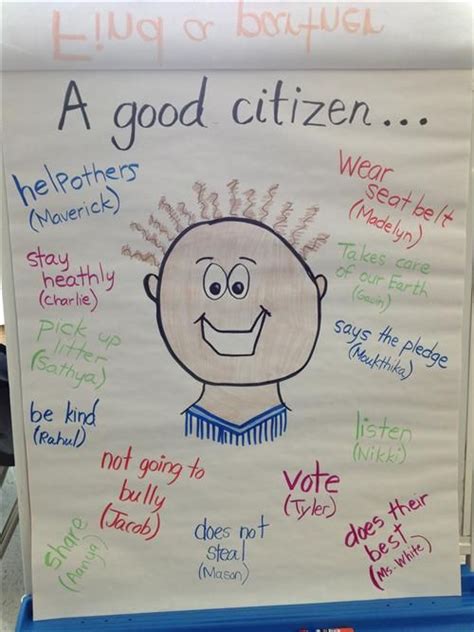 Find a partner
A good citizen...
help others
(Maverick)
Wear
seat belt
(Madelyn)
stay
heathly
(Charlie)
Takes care
of our Earth
(Gavin)
pick up
litter
(Sathya)
says the pledge
(Maukthika)
be kind
(Rahul)
listen
(Nikki)
not going to
bully
(Jacob)
vote
(Tyler)
share
(Aanya)
does not
steal
(Mason)
does their
best
(Ms. White)